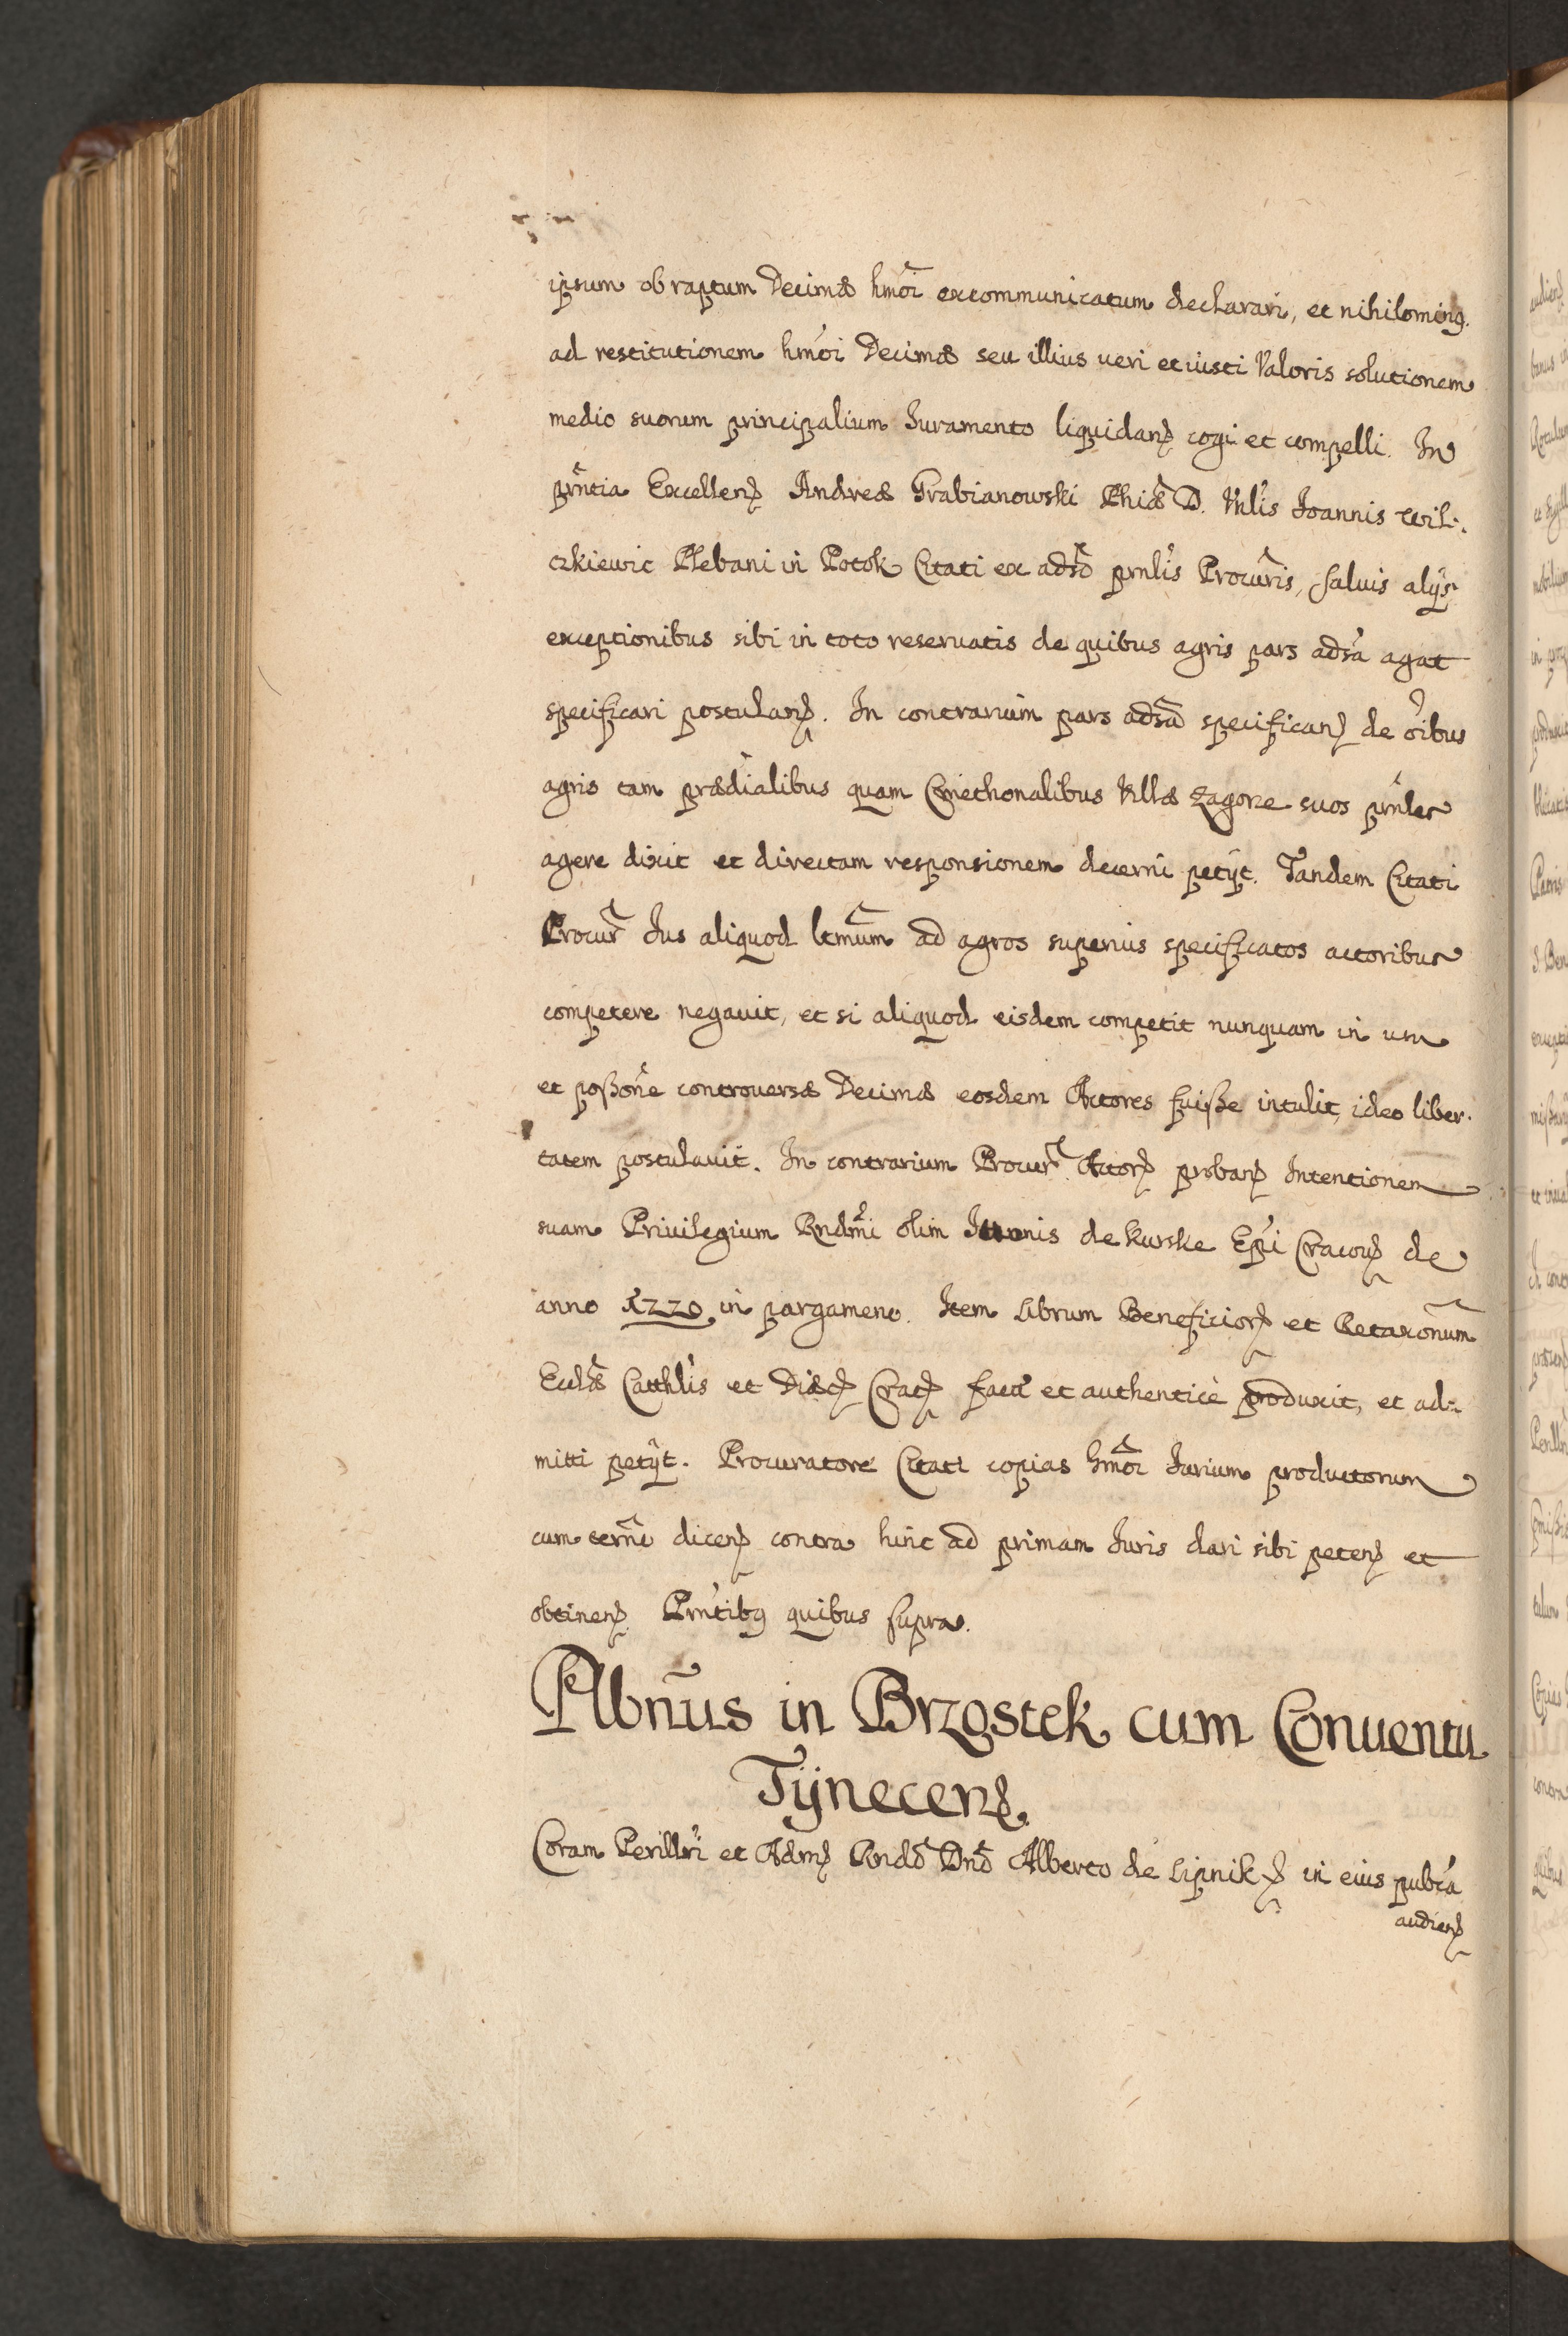 ipsum ob raptum Decimæ hmõi excommunicatum declarari, et nihilominq.
ad restitutionem hmõi Decimæ seu illius ueri et iusti Valoris solutionem
medio suorum principalium Iuramento liquidanȝ cogi et compelli. In
prñtia Excellenȝ Andreæ Grabianowski Phiæ D. Vnlis Joannis Wil:.
czkiewic Plebani in Potok Citati ex adsõ prnlis Procuris, saluis alijs
exceptionibus sibi in toto reseruatis de quibus agris pars adsa agat
specificari postulanȝ. In contrarium pars adsa specificanȝ de oĩbus
agris tam prædialibus quam Cmethonalibus Villæ Zagorze suos prnles
agere dixit et directam responsionem decerni petijt. Tandem Citati
Procur Ius aliquod ltmum ad agros superius specificatos actoribus
competere negauit, et si aliquod eisdem competit nunquam in usu
et poßone controuersæ Decimæ eosdem Actores fuiße intulit, ideo liber.
tatem postulauit. In contrarium Procur Actorȝ probanȝ Intentionem
suam Priuilegium Rndmi olim de Kurske Epi Cracouȝ de
anno in pargameno. Item Librum Beneficiorȝ et Retaxonum
Ecclæ Catthlis et Diæcȝ Cracȝ facte et authenticè produxit, et ad:
mitti petijt. Procuratore Citati copias hmoi Iurium productorum
cum termi dicenȝ contra hinc ad primam Iuris dari sibi petenȝ et
obtinenȝ. Prntibq quibus supra.
Plbnus in Brzostek cum Conuentu
Tÿnecenȝ.
Coram Perillri et Admȝ Rndo Dno Alberto de Lipnik ȝ in eius pubca
audienȝ